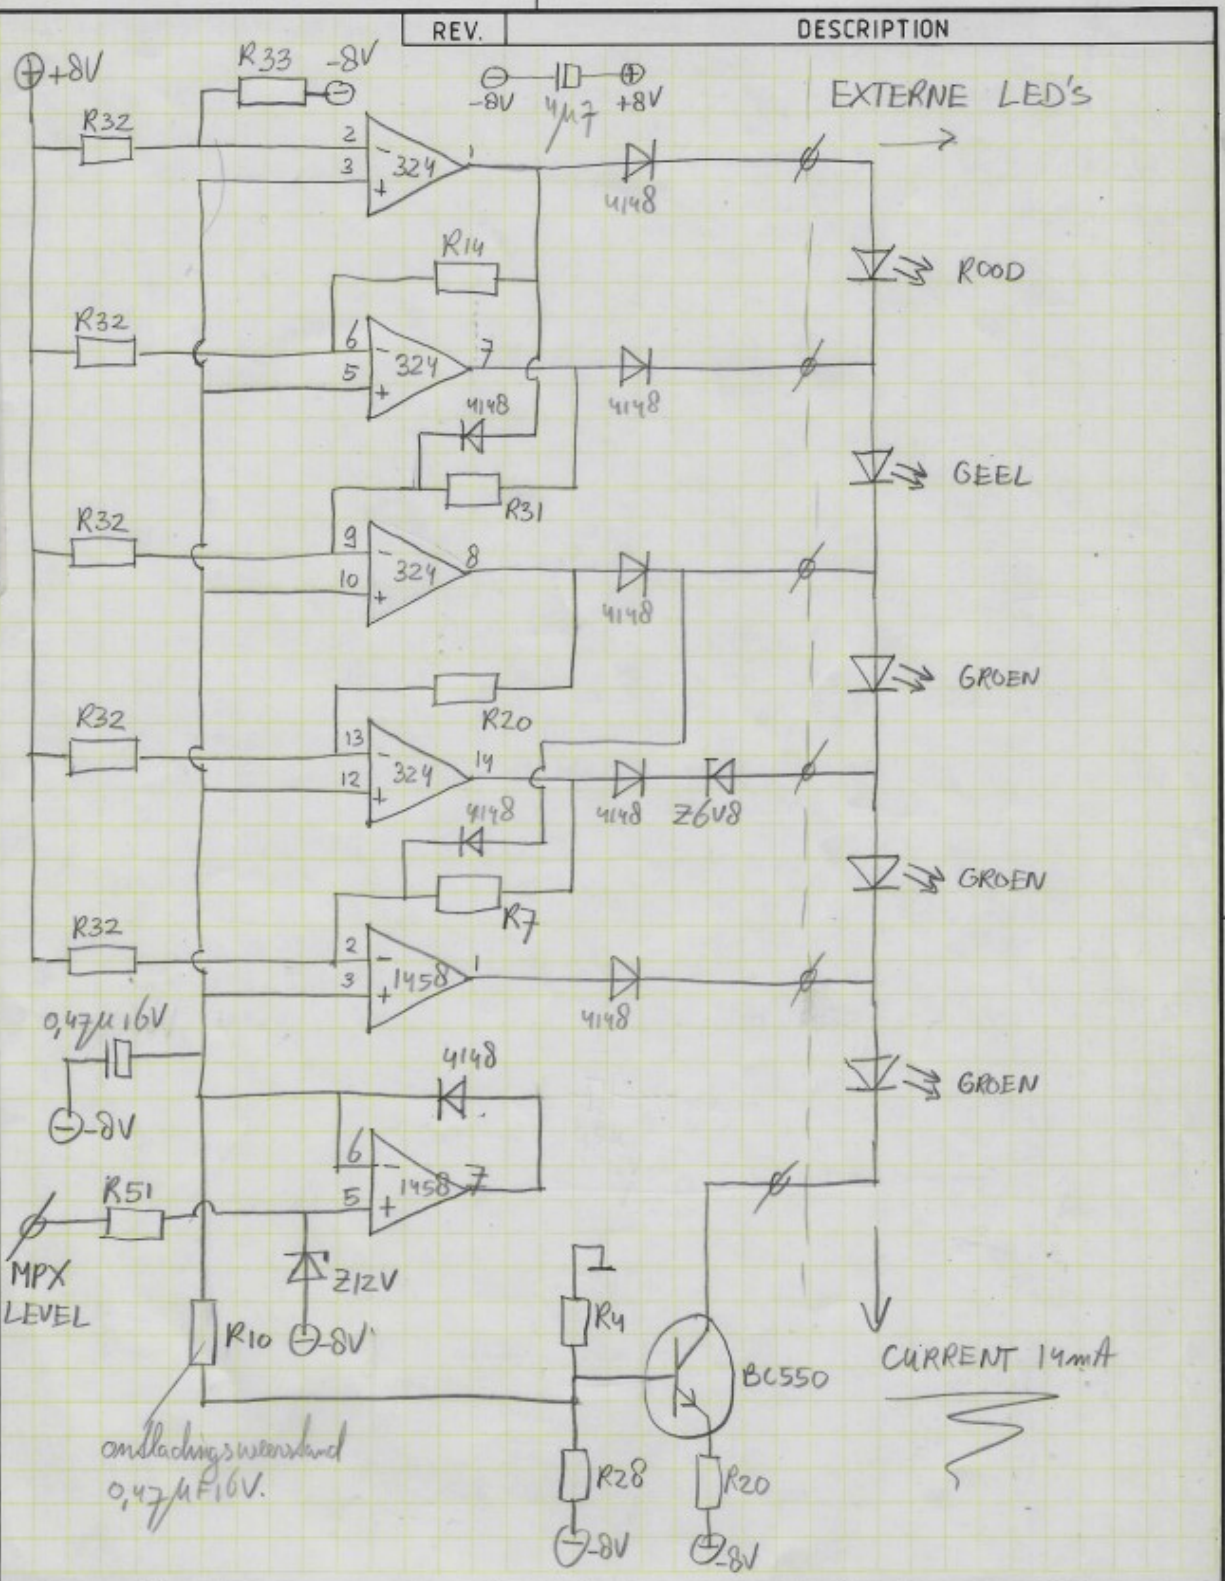 REV. DESCRIPTION
+8V R33 -8V
-8V 4µ7 +8V
EXTERNE LED's
R32 2 - 324 1
3 +
4148
R14
ROOD
R32 6 - 324 7
5 +
4148
4148
GEEL
R31
R32 9 - 324 8
10 +
4148
GROEN
R20
R32 13 - 324 14
12 +
4148 4148 Z6V8
GROEN
R7
R32 2 - 1458 1
3 +
4148
0,47µ 16V
4148
GROEN
-8V
6 - 1458 7
5 +
R51
MPX
LEVEL
Z12V
R10 -8V
R4
BC550
CURRENT 14mA
ontladingsweerstand
0,47µF16V.
R28 R20
-8V -8V